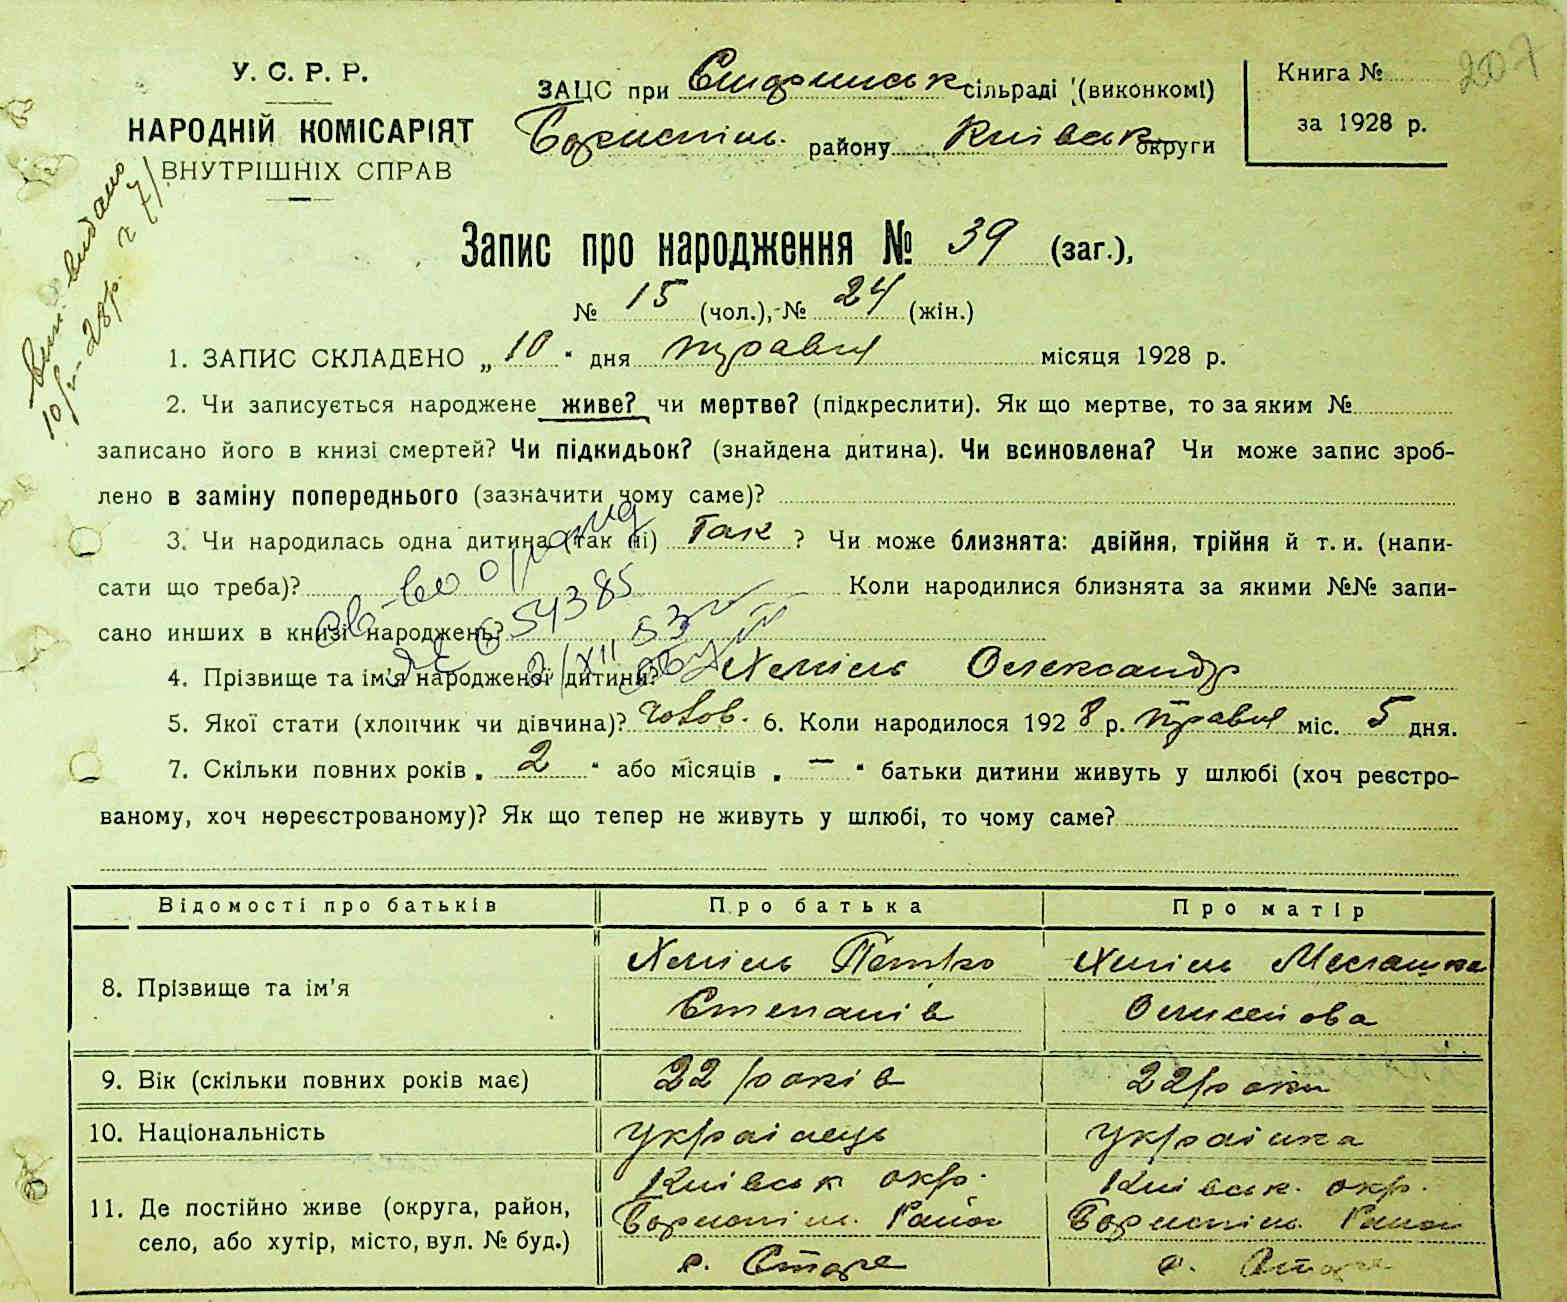 207
У. С. Р. Р.
НАРОДНІЙ КОМІСАРІЯТ
ВНУТРІШНІХ СПРАВ
ЗАЦС при Старинськ сільраді (виконкомі)
Бориспіль. району Київськ округи
Книга №
за 1928 р.
видано
Запис про народження № 39 (заг.),
№ 15 (чол.), № 24 (жін.)
1. ЗАПИС СКЛАДЕНО „10“ дня травня місяця 1928 р.
2. Чи записується народжене живе? чи мертве? (підкреслити). Як що мертве, то за яким №
записано його в книзі смертей? Чи підкидьок? (знайдена дитина). Чи всиновлена? Чи може запис зроб-
лено в заміну попереднього (зазначити чому саме)?
3. Чи народилась одна дитина (так ні) Так ? Чи може близнята: двійня, трійня й т. и. (напи-
сати що треба)? Коли народилися близнята за якими №№ запи-
сано инших в книзі народжень?
св-во
054385
2/XII 53
4. Прізвище та ім'я народженої дитини? Хміль Олександр
5. Якої стати (хлопчик чи дівчина)? чолов. 6. Коли народилося 1928 р. травня міс. 5 дня.
7. Скільки повних років „ 2 “ або місяців „ — “ батьки дитини живуть у шлюбі (хоч реєстро-
ваному, хоч нереєстрованому)? Як що тепер не живуть у шлюбі, то чому саме?
Відомості про батьків Про батька Про матір
8. Прізвище та ім'я Хміль Петко Степанів Хміль Мелашка Оликсіїова
9. Вік (скільки повних років має) 22 років 22 роки
10. Національність українець українка
11. Де постійно живе (округа, район, село, або хутір, місто, вул. № буд.) Київськ окр. Бориспіль. Район с. Старе Київськ. окр. Бориспіль. Район с. Старе